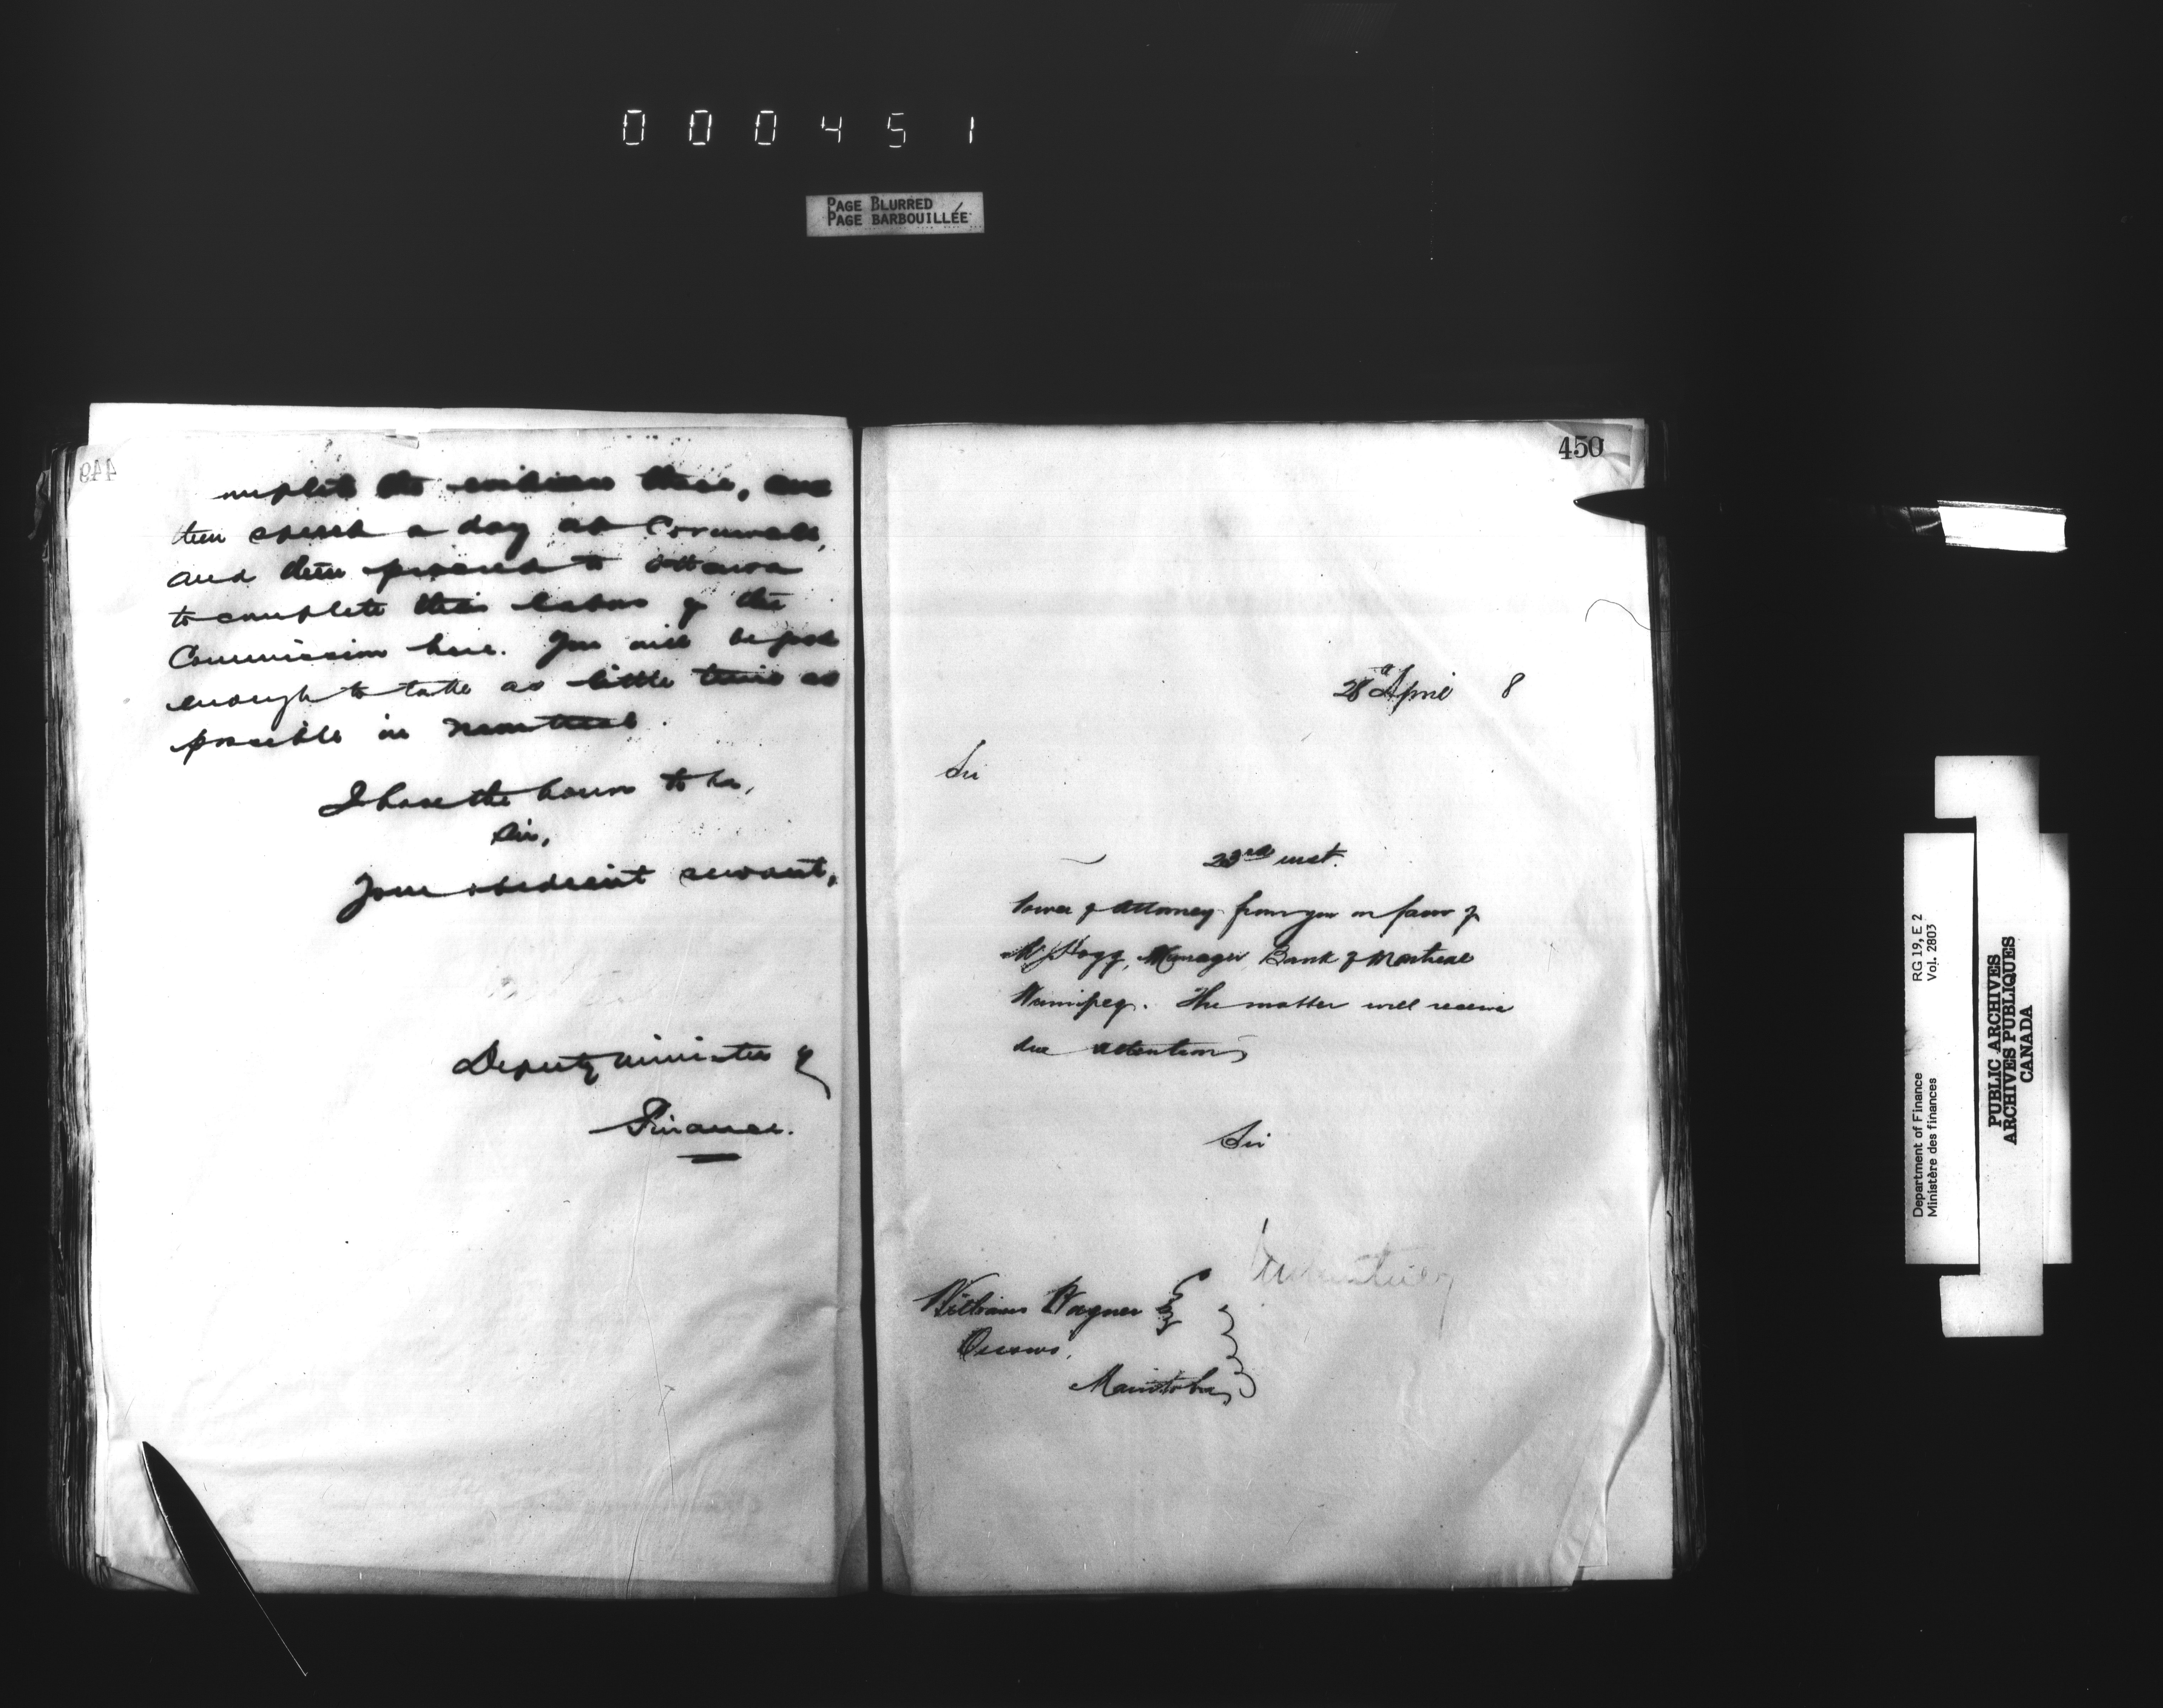 000451
PAGE BLURRED
PAGE BARBOUILLÉE
449
the evidence there, and
then spend a day at Cornwall,
and then proceed to Ottawa
to complete the labors of the
Commission here. You will be good
enough to take as little time as
possible in Montreal.
I have the honor to be,
Sir,
Your obedient servant,
Deputy Minister of
Finance.
450
28th April 8
Sir
23rd inst.
Power of Attorney from you in favor of
Mr Hogg, Manager Bank of Montreal
Winnipeg. The matter will receive
due attention
Sir
William Wagner Esq
Ossowo,
Manitoba
Department of Finance
Ministère des finances
RG 19, E 2
Vol. 2803
PUBLIC ARCHIVES
ARCHIVES PUBLIQUES
CANADA